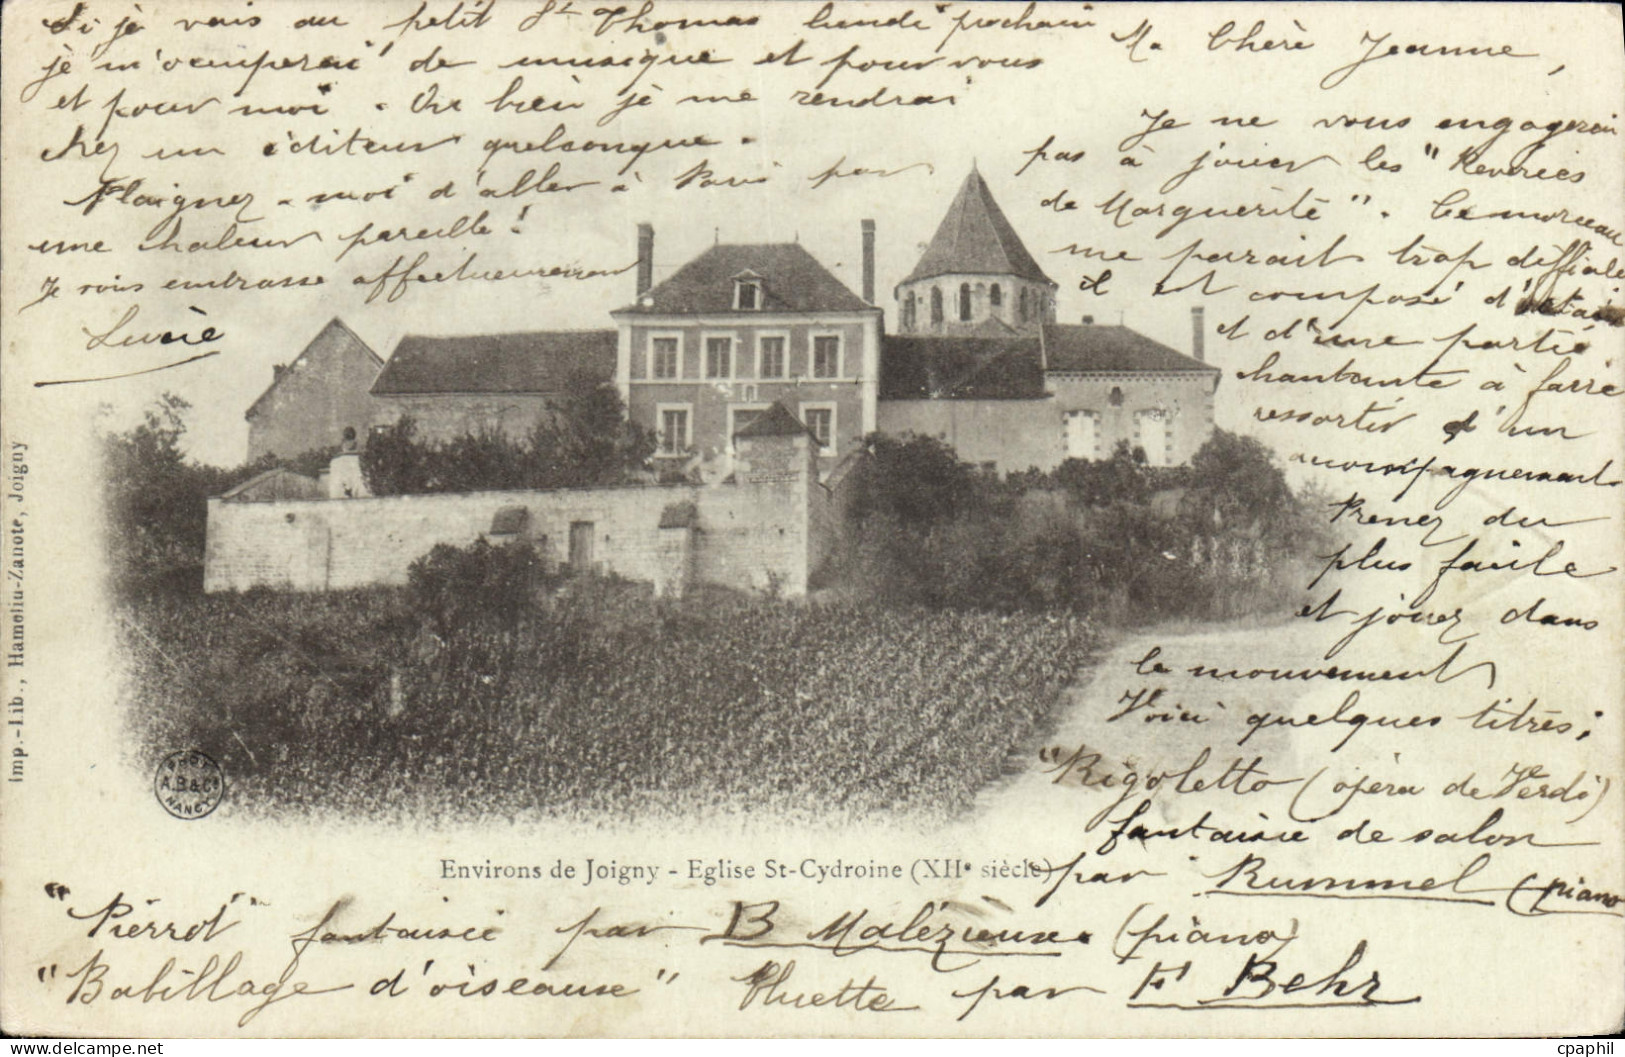 Ma Chère Jeanne,
Je ne vous engagerai
pas à jouer les "Reveries
de Marguerite". Ce morceau
me parait trop difficile
il est composé
et d'une partie
chantante à faire
ressortir d'un
accompagnement
Prenez du
plus facile
et jouez dans
le mouvement
Voici quelques titres:
"Rigoletto (opéra de Verdi)
fantaisie de salon
par Rummel (piano
"Pierrot" fantaisie par B Malézieux. (piano)
"Babillage d'oiseaux" Pluette par F Behr
Si je vais au petit St Thomas lundi prochain
je m'occuperai de musique et pour vous
et pour moi. Ou bien je me rendrai
chez un éditeur quelconque.
Plaignez-moi d'aller à Paris par
une chaleur pareille!
Je vous embrasse affectueusement
Lucie
Environs de Joigny - Eglise St-Cydroine (XIIe siècle)
Imp.-Lib., Hamelin-Zanote, Joigny
A.B&Cie
NANCY
cpaphil